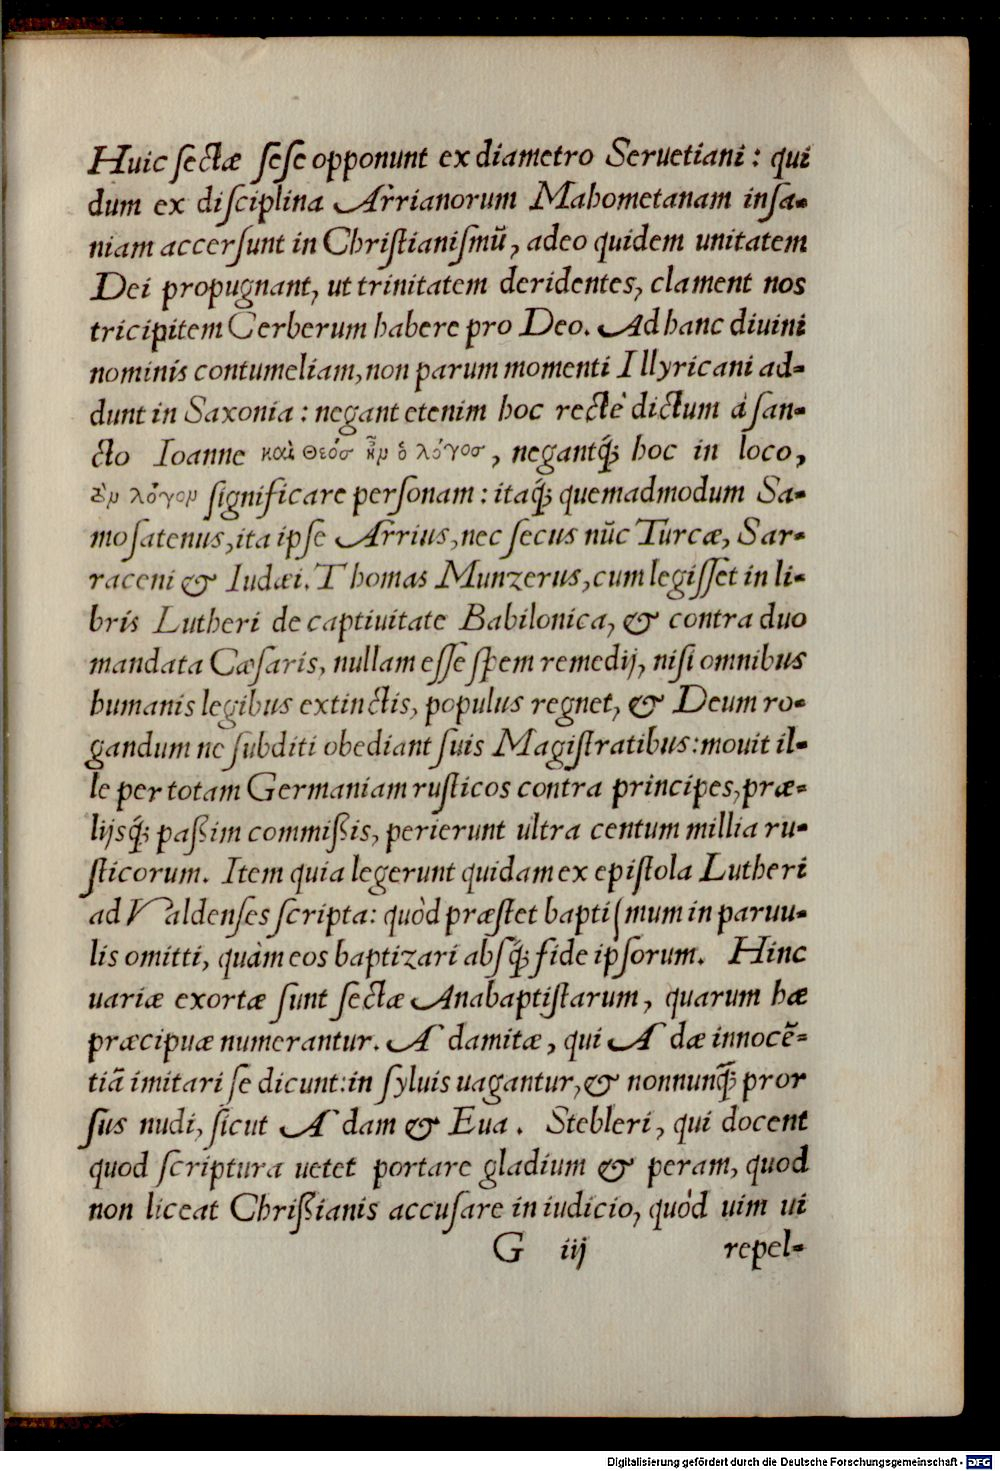 Huic sectæ sese opponunt ex diametro Seruetiani: qui
dum ex disciplina Arrianorum Mahometanam insa-
niam accersunt in Christianismū, adeo quidem unitatem
Dei propugnant, ut trinitatem deridentes, clament nos
tricipitem Cerberum habere pro Deo. Ad hanc diuini
nominis contumeliam, non parum momenti Illyricani ad-
dunt in Saxonia: negant etenim hoc rectè dictum à san-
cto Ioanne καὶ θεὸσ ἦν ὁ λόγοσ, negantq́; hoc in loco,
λόγον significare personam: itaq́; quemadmodum Sa-
mosatenus, ita ipse Arrius, nec secus nūc Turcæ, Sar-
raceni & Iudæi. Thomas Munzerus, cum legisset in li-
bris Lutheri de captiuitate Babilonica, & contra duo
mandata Cæsaris, nullam esse spem remedij, nisi omnibus
humanis legibus extinctis, populus regnet, & Deum ro-
gandum ne subditi obediant suis Magistratibus: mouit il-
le per totam Germaniam rusticos contra principes, præ-
lijsq́; paßim commißis, perierunt ultra centum millia ru-
sticorum. Item quia legerunt quidam ex epistola Lutheri
ad Valdenses scripta: quòd præstet baptismum in paruu-
lis omitti, quàm eos baptizari absq́; fide ipsorum. Hinc
uariæ exortæ sunt sectæ Anabaptistarum, quarum hæ
præcipuæ numerantur. Adamitæ, qui Adæ innocē-
tiā imitari se dicunt: in syluis uagantur, & nonnunq̃; pror
sus nudi, sicut Adam & Eua. Stebleri, qui docent
quod scriptura uetet portare gladium & peram, quod
non liceat Chrißianis accusare in iudicio, quòd uim ui
G iij repel-
Digitalisierung gefördert durch die Deutsche Forschungsgemeinschaft - DFG